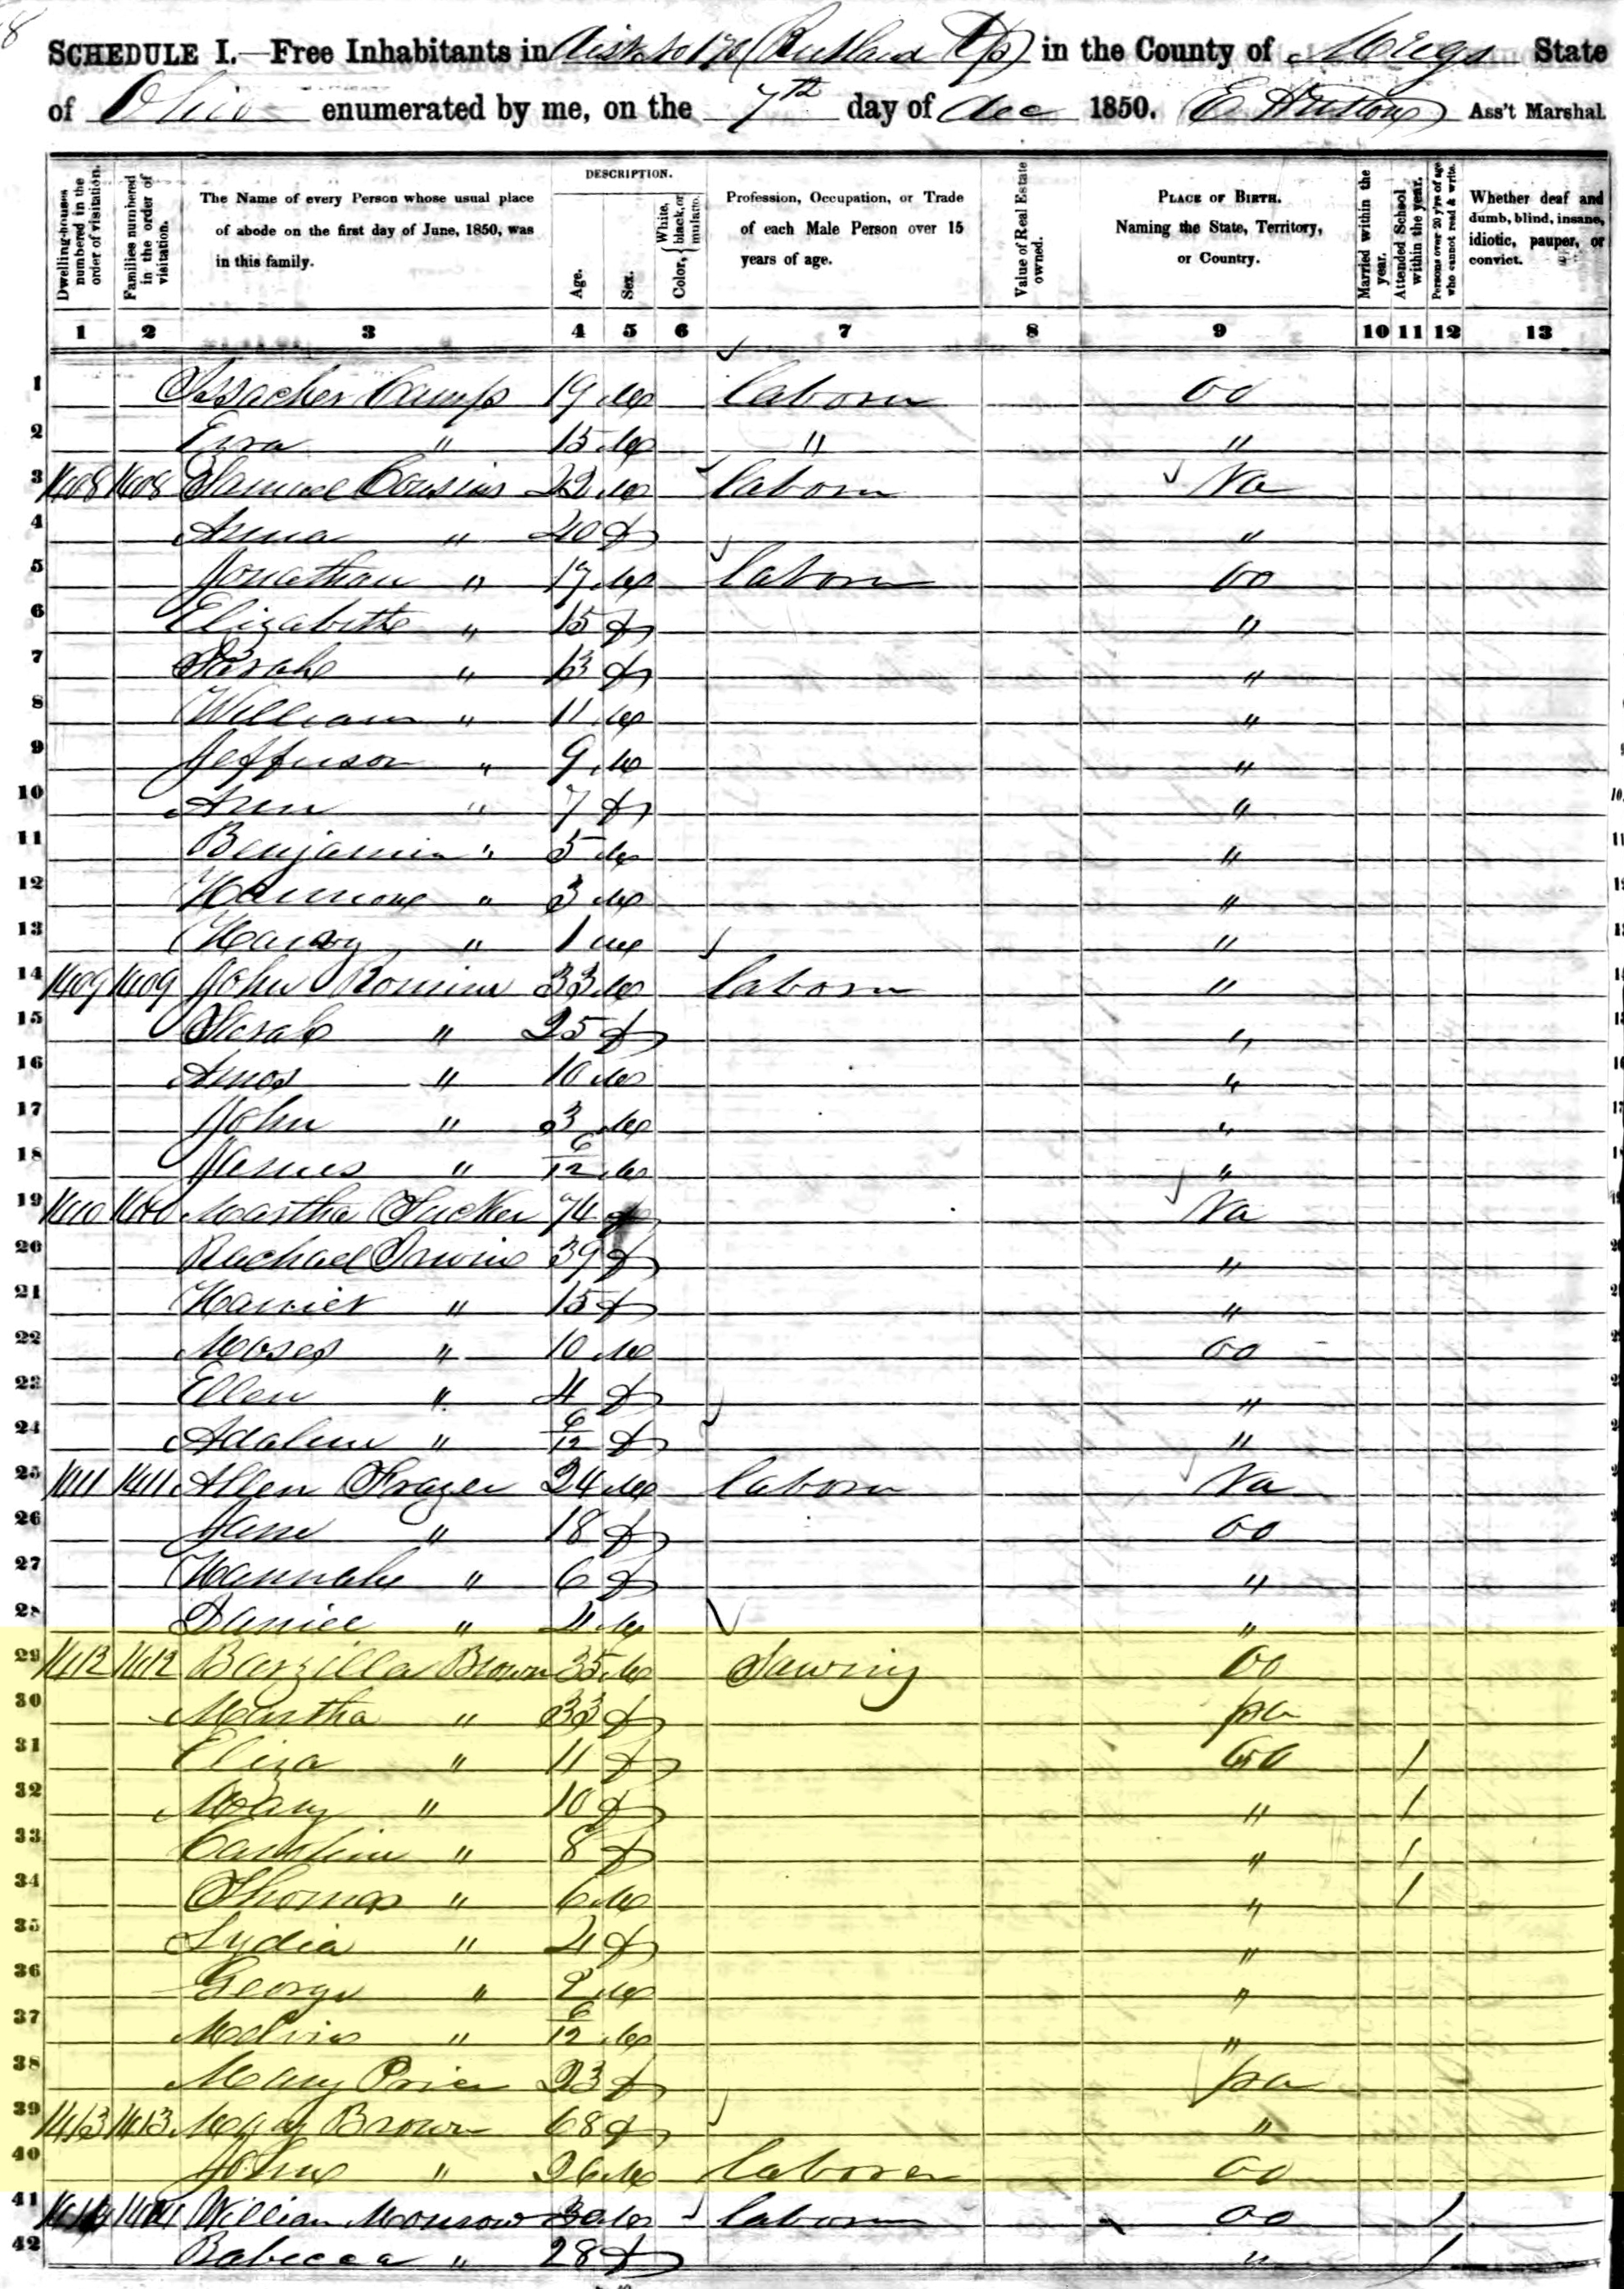 8
SCHEDULE I.—Free Inhabitants in Dist. No 170 (Rutland Tp) in the County of Meigs State
of Ohio enumerated by me, on the 7th day of Dec 1850. Ass't Marshal.
Dwelling-houses numbered in the order of visitation.
Families numbered in the order of visitation.
The Name of every Person whose usual place of abode on the first day of June, 1850, was in this family.
DESCRIPTION.
Age.
Sex.
Color, { White, black, or mulatto.
Profession, Occupation, or Trade of each Male Person over 15 years of age.
Value of Real Estate owned.
PLACE OF BIRTH. Naming the State, Territory, or Country.
Married within the year.
Attended School within the year.
Persons over 20 y'rs of age who cannot read & write.
Whether deaf and dumb, blind, insane, idiotic, pauper, or convict.
1 2 3 4 5 6 7 8 9 10 11 12 13
1 Issacher Camp 19 M labour Oo
2 Ezra " 15 M " "
3 1408 1408 Samuel Cousins M labour Va
4 Anna " 40 f "
5 Jonathan " 17 M labour Oo
6 Elizabeth " 15 f "
7 Sarah " 13 f "
8 William " 11 M "
9 Jefferson " 9 M "
10 Ann " 7 f "
11 Benjamin " 5 M "
12 " 3 M "
13 " 1 M "
14 1409 1409 John 33 M labour "
15 Sarah " 25 f "
16 Amos " 10 M "
17 John " 3 M "
18 James " 6/12 M "
19 1410 1410 Martha Tucker 74 f Va
20 Rachael 39 f "
21 Harriet " 15 f "
22 Moses " 10 M Oo
23 Ellen " 4 f "
24 Adaline " 6/12 f "
25 1411 1411 Allen Frazer 24 M labour Va
26 Jane " 18 f Oo
27 Hannah " 6 f "
28 Daniel " 4 M "
29 1412 1412 Barzilla Brown 35 M Sawing Oo
30 Martha " 33 f pa
31 Eliza " 11 f Oo /
32 Mary " 10 f " /
33 Caroline " 8 f " /
34 Thomas " 6 M " /
35 Lydia " 4 f "
36 George " 2 M "
37 Melvin " 6/12 M "
38 Mary Price 23 f pa
39 1413 1413 Mary Brown 68 f "
40 John " 26 M laborer Oo
41 1414 1414 William Monrow 30 M labour Oo /
42 Rebecca " 28 f " /